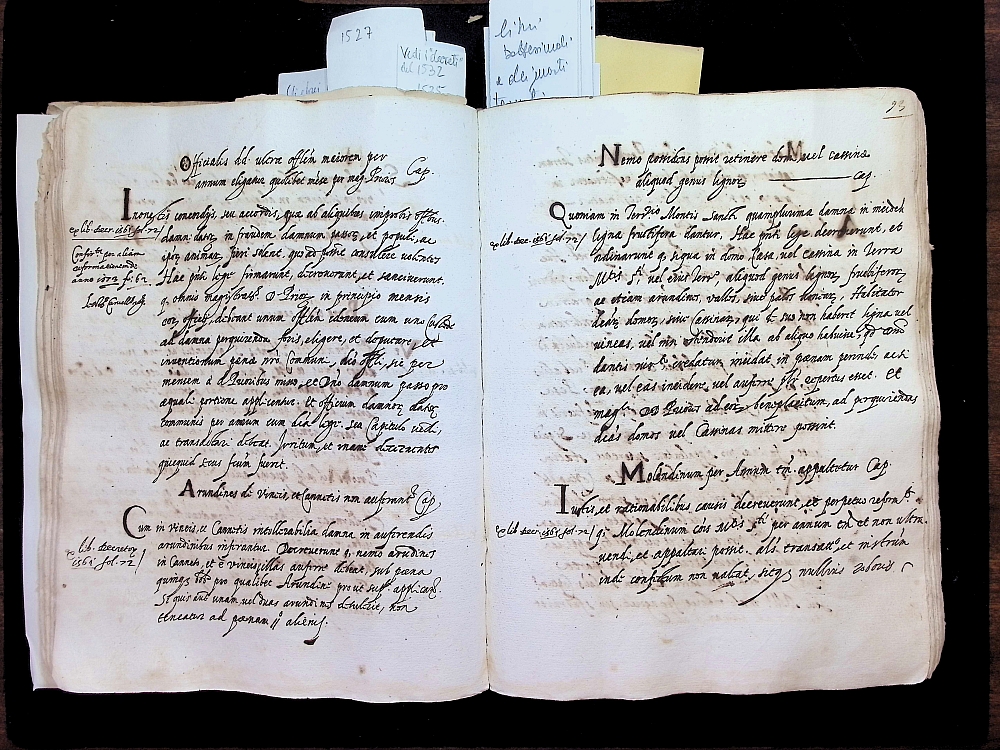 1527
Vedi i "decreti"
del 1532
1535
libri
e dei morti
93
Officiales dd. ultra offlem maiorem per
annum eligatur quilibet mese per mag. Priores Cap.
Inonestis conendijs, seu accordis, quae ab aliquibus improbis
damn. datis in fraudem damnum passor, et populi, ac
ipsor animar, fieri solent, quo ad posse consulere volentes
Hac pnti lege firmarunt, decreuerunt, et sanciuerunt.
q. omnis magistrat. D. Prior in principio mensis
eor officij, debeant unum offlem idoneum cum uno
ad damna perquirenda foris, eligere, et deputare, et
inuentionum pena nro Commun., dicto offli, sic per
mensem à d. Prioribus misso, et Dno damnum passo pro
aequali portione applicentur. Et officium damnor dator
communis per annum cum dicta lege, seu Capitulo vendi,
ac transdelari debeat. Irritum, et inane decernentes
quicquid secus factum fuerit.
ex lib. decr. 1561 fol. 72
Confir. per aliam
reformationem de
anno 1572 fol. 62
Arundines de vineis, et Cannetis non auferant Cap.
Cum in vineis, et Cannetis intollerabilia damna in auferendis
arundinibus inferantur. Decreuerunt q. nemo arundines
in Cannetis, et è vineis, illas auferre debeat, sub pena
quinq. pro qualibet Arundine prout sup. applican.
Si quis autem unam, vel duas arundines abstulerit, non
teneatur ad poenam alienis.
ex lib. Decretor
1561 fol. 72
Nemo possidens possit retinere domi, vel cassina
aliquod genus lignor Cap.
Quoniam in Territorio Montis Sancti quamplurima damna in incidendis
ligna fructifera dantur. Hac pnti lege decreuerunt, et
ordinarunt q. siqua in domo Casa, vel cassina in Terra
Mtis Sti vel eius Terr., aliquod genus lignor, fructiferor,
ac etiam arundines, vallos, siue palos donent, Habitator
dictar domor, siue Cassinar, qui è suo non haberet ligna vel
vineas, vel non ostenderit illa ab aliquo habuisse,
dantis credatur incidat in poenam perinde, ac si
ea, vel eas incidere, vel auferre repertus esset. Et
mag. DD. Priores ad eor beneplacitum, ad perquirendas
dictas domos vel Cassinas mittere possent.
ex lib. decr. 1561 fol. 72
Molendinum per Annum tm. appaltetur Cap.
Iustis, et rationabilibus causis decreuerunt, et perpetuo reform.
q. Molendinum cois Mtis Sti per annum tm et non ultra
uendi, et appaltari possit. als. transactu, et instrum
inde confectum non ualeat, sitq. nullius roboris
ex lib. decr. 1561 fol. 72